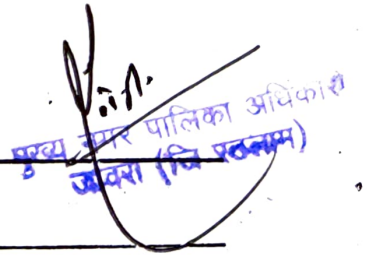 मुख्य नगर पालिका अधिकारी
जावरा (जि रतलाम)